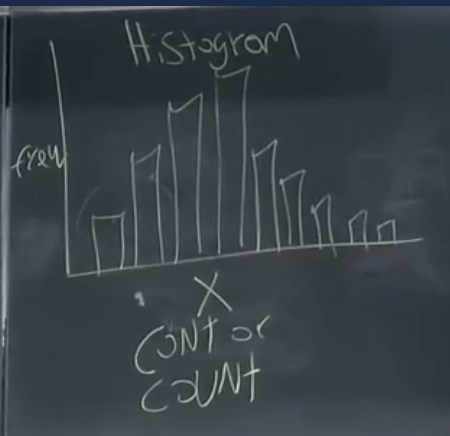 Histogram
freq
X
CONT or
COUNT